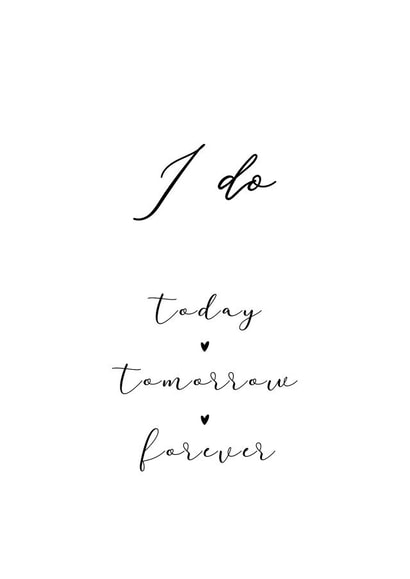 I do
today
♥
tomorrow
♥
forever